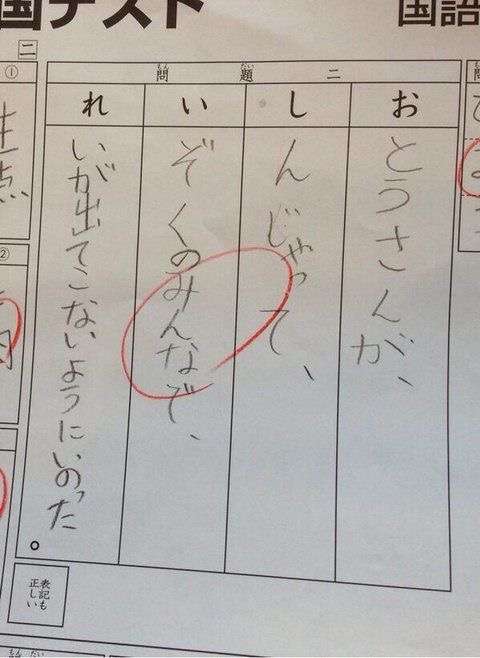 国テスト
国語
問題二
もんだい
おとうさんが、
しんじゃって、
いぞくのみんなで、
れいが出てこないようにいのった。
表記も
正しい
二
①
②
もんだい